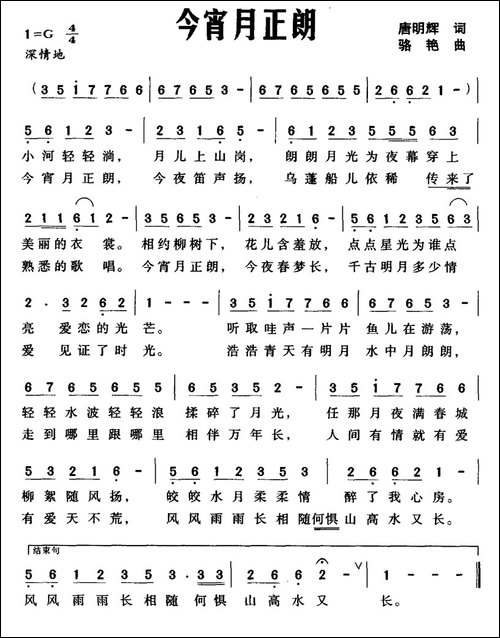 今宵月正朗
1=G 4/4
深情地
唐明辉 词
骆艳 曲
(3 5 i 7 7 6 6 | 6 7 6 5 3 - | 6 7 6 5 6 5 5 | 2 6 6 2 1 -)
5 6 1 2 3 - | 2 3 1 6 5 - | 6 1 2 3 2 3 5 5 3
小河轻轻淌， 月儿上山岗， 朗朗月光为夜幕穿上
今宵月正朗， 今夜笛声扬， 乌蓬船儿依稀 传来了
2 1 1 6 1 2 - | 3 5 6 5 3 - | 2 3 1 6 5 - | 6 1 2 3 5 6 3
美丽的衣 裳。 相约柳树下， 花儿含羞放， 点点星光为谁点
熟悉的歌 唱。 今宵月正朗， 今夜春梦长， 千古明月多少情
2 . 3 2 6 2 | 1 - - - | 3 5 i 7 7 6 6 | 6 7 6 5 3 -
亮 爱恋的光 芒。 听取哇声一片片 鱼儿在游荡，
爱 见证了时 光。 浩浩青天有明月 水中月朗朗，
6 7 6 5 6 5 5 | 6 5 3 5 2 - | 3 5 i 7 7 6 6
轻轻水波轻轻浪 揉碎了月光， 任那月夜满春城
走到哪里跟哪里 相伴万年长， 人间有情就有爱
5 3 2 1 6 - | 5 6 1 2 3 5 3 | 2 6 6 2 1 -
柳絮随风扬， 皎皎水月柔柔情 醉了我心房。
有爱天不荒， 风风雨雨长相随何惧山高水又长。
结束句
5 6 1 2 3 5 3 . 3 3 | 2 6 6 2 - ∨ | 1 - - -
风风雨雨长相随 何惧 山高水又 长。